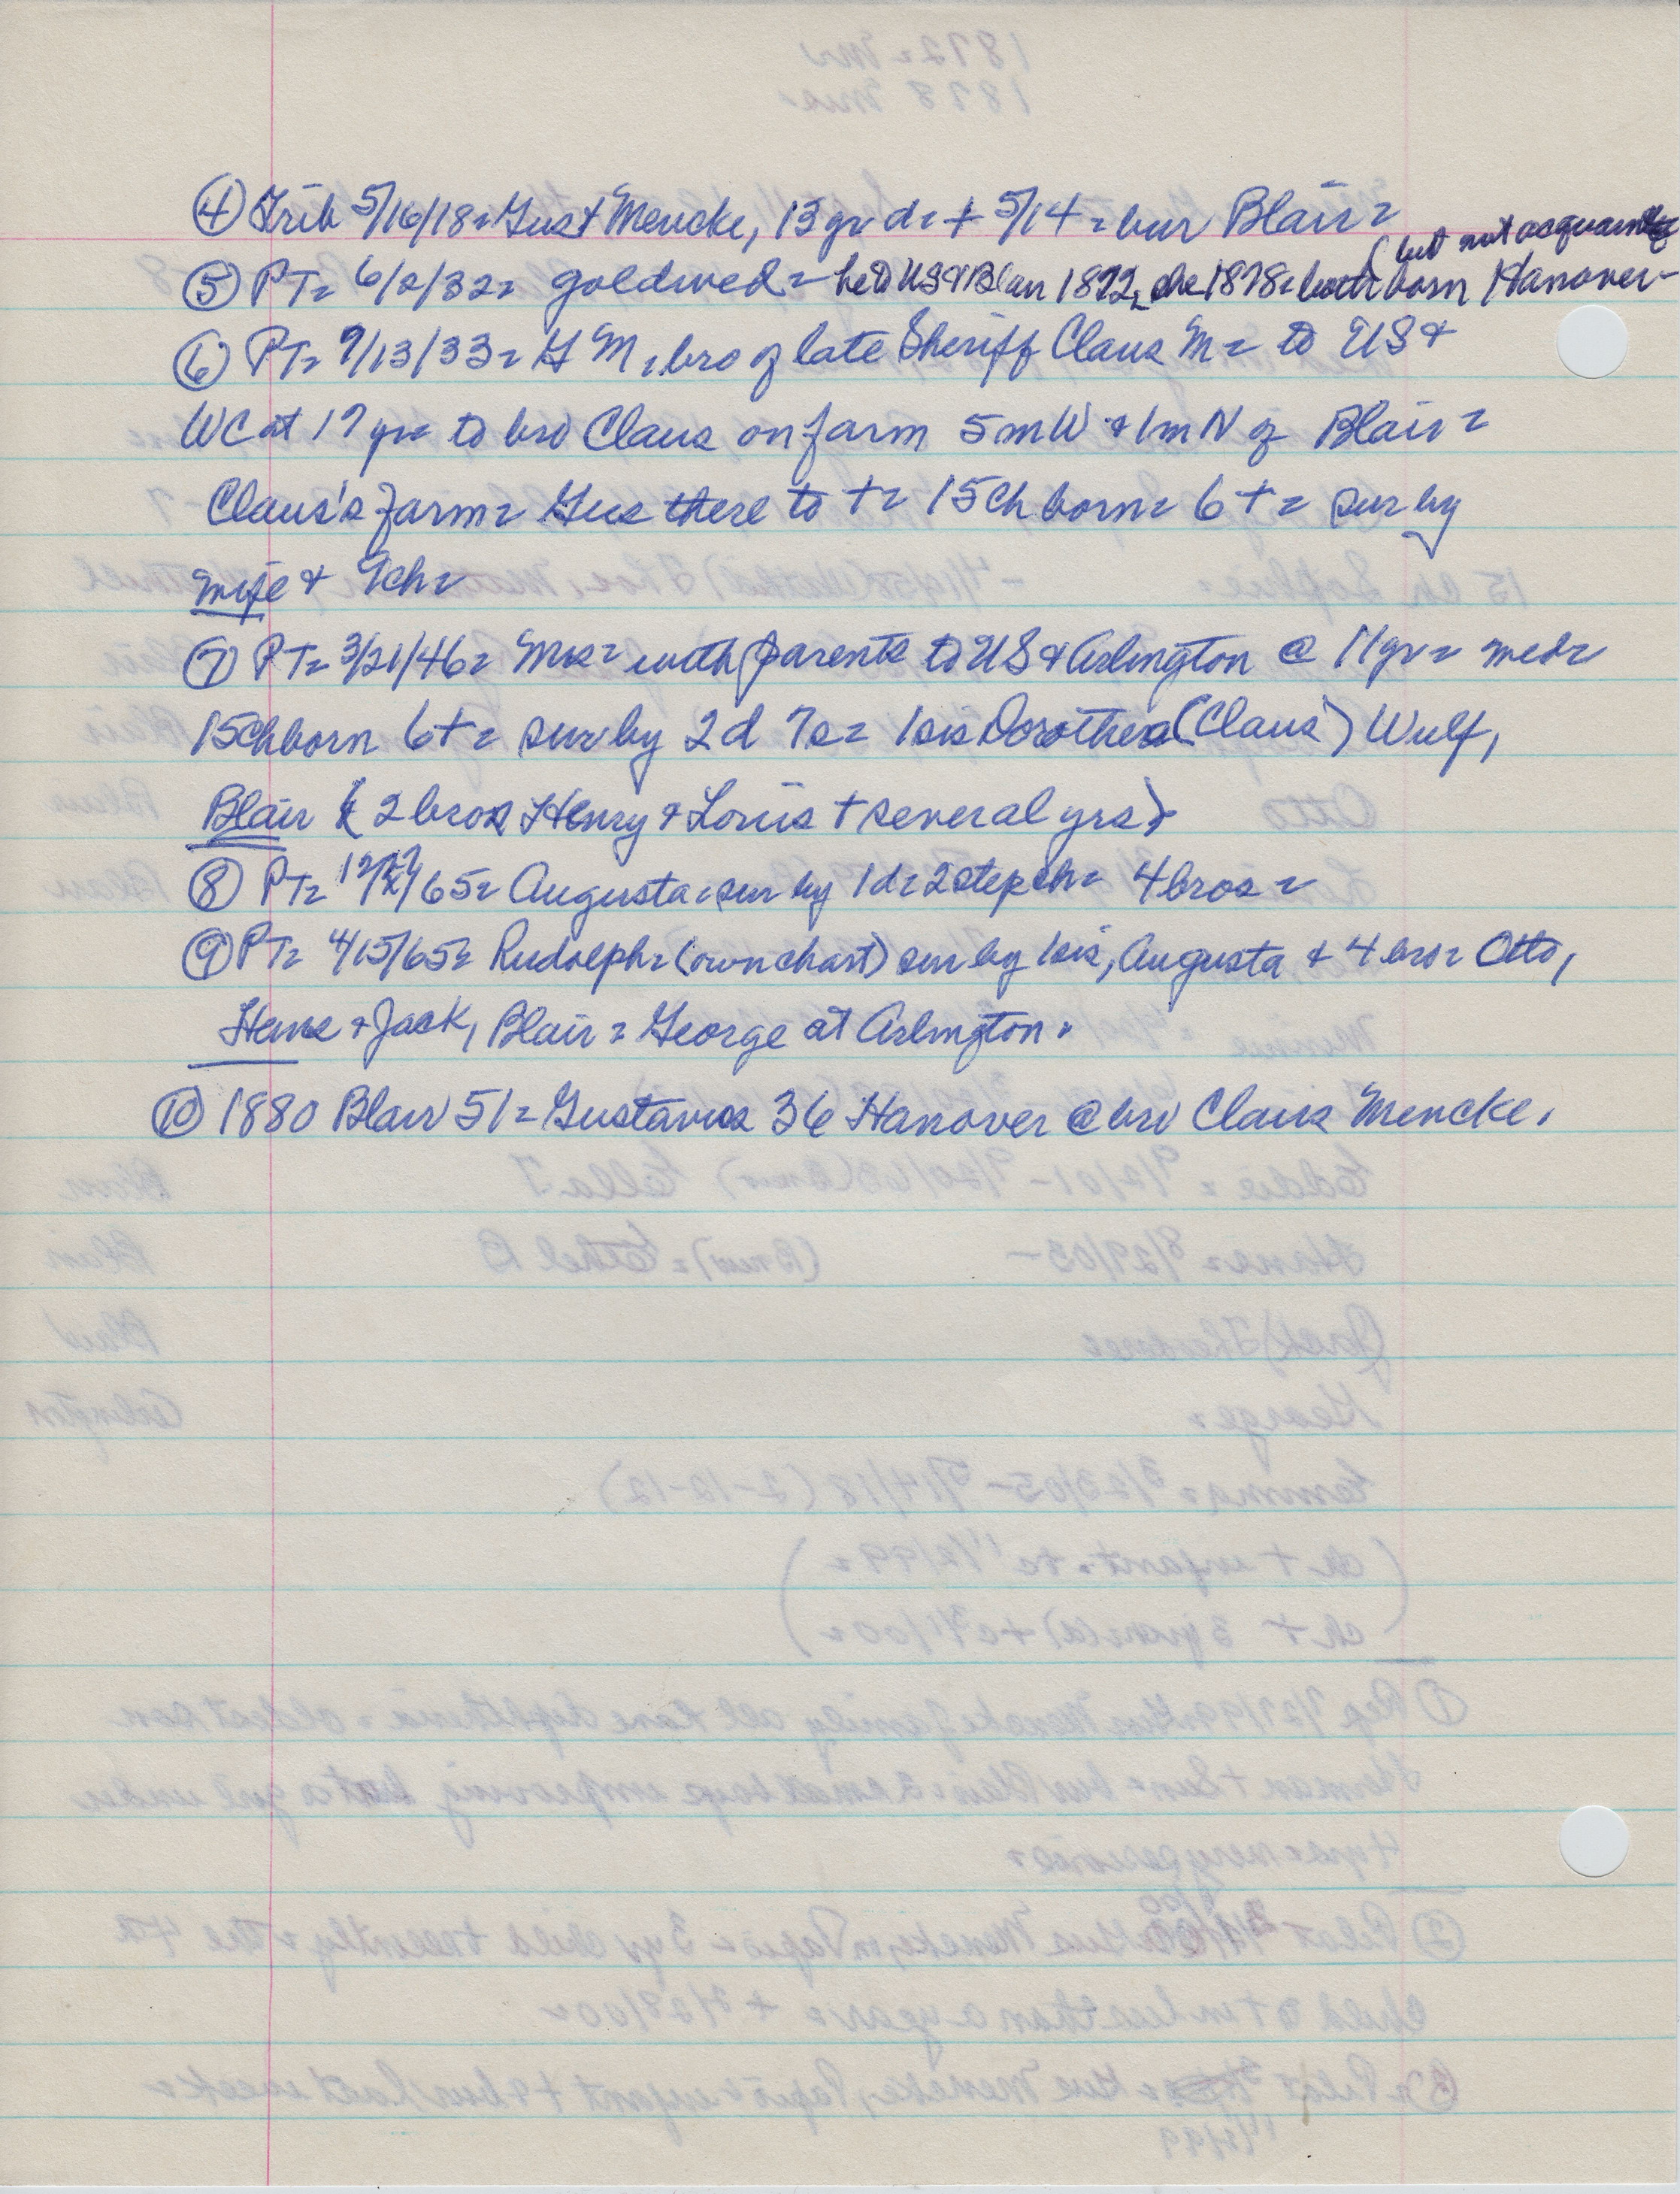 ④ Trib 5/16/18= Gust Mencke, 13 yr d= + 5/14 = bur Blair =
(but not acquainted
⑤ PT= 6/2/32= goldwed = he to US & Blair 1872, she 1878= both born Hanover-
⑥ PT= 9/13/33= G M, bro of late Sheriff Claus M= to US &
WC at 19 yr= to bro Claus on farm 5mW & 1mN of Blair =
Claus's farm= Gus there to += 15 ch born= 6+= sur by
wife & 9ch=
⑦ PT= 3/21/46= Mrs= with parents to US & Arlington @ 11yr= med=
15ch born 6+= sur by 2d 7s= 1sis Dorothea (Claus) Wulf,
Blair (2 bros Henry & Louis + several yrs)
⑧ PT= 12/27/65= Augusta= sur by 1d= 2 stepch= 4 bros =
⑨ PT= 4/15/65= Rudolph= (own chart) sur by 1sis, Augusta & 4 bro= Otto,
Hans & Jack, Blair = George at Arlington.
⑩ 1880 Blair 51= Gustavus 36 Hanover @ bro Claus Mencke.